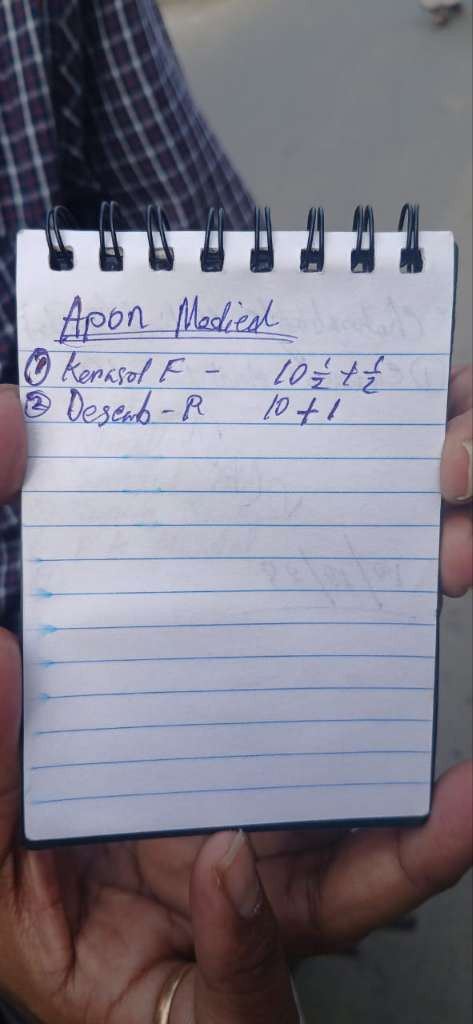 Apon Medical
① Kerasol F - 10 ½ + ½
② Desemb - R 10 + 1